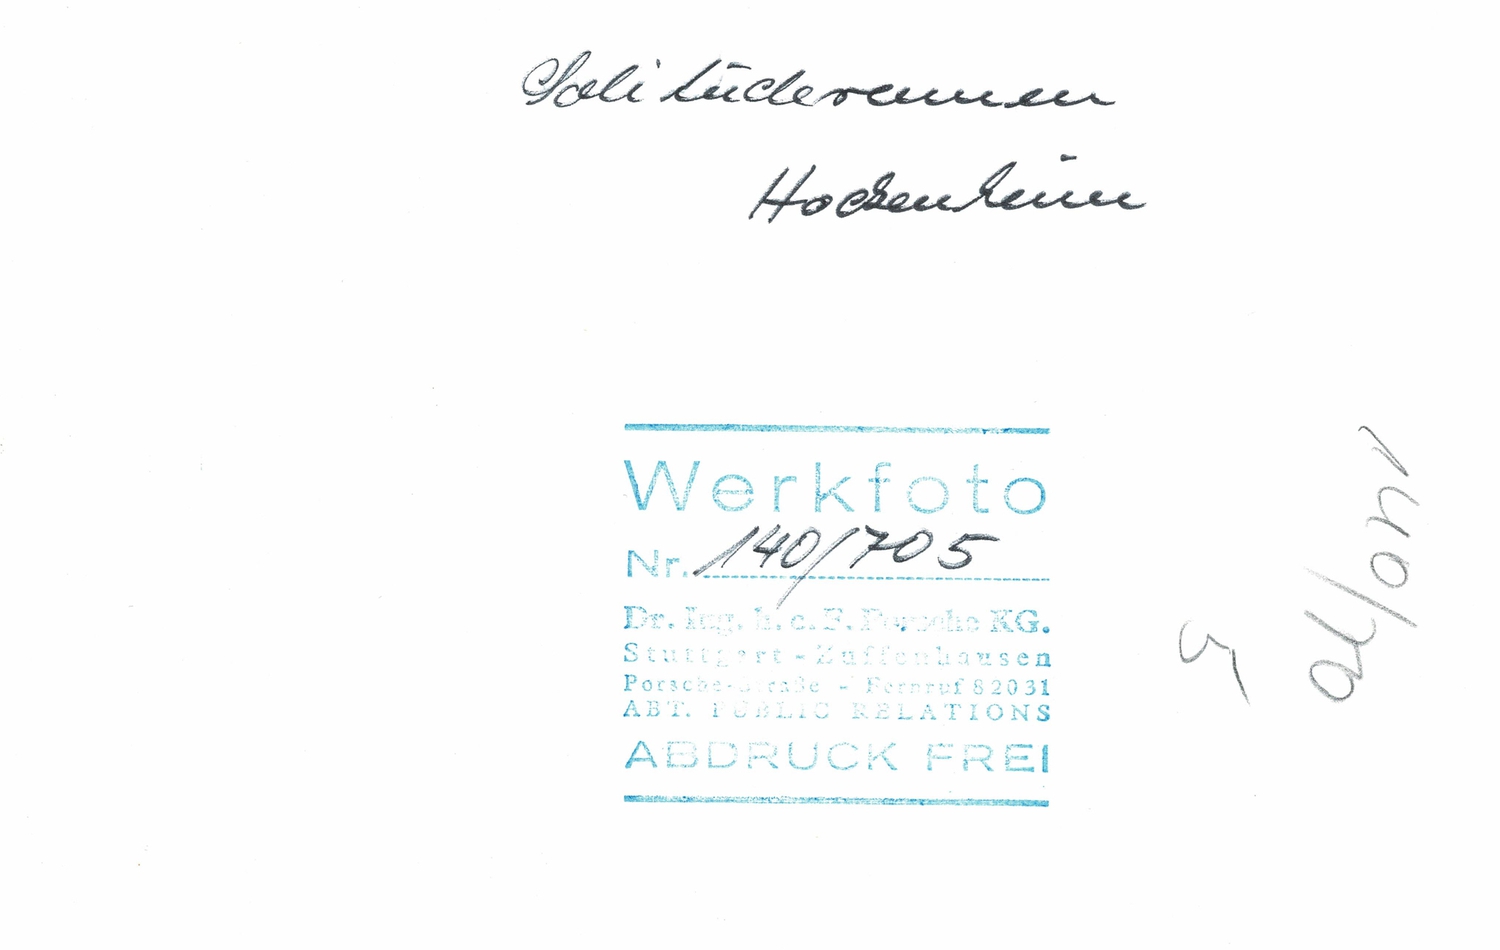 Solitüderennen
Hockenheim
Werkfoto
Nr. 140/705
Dr. Ing. h. c. F. Porsche KG.
Stuttgart - Zuffenhausen
Porsche-Straße - Fernruf 82031
ABT. PUBLIC RELATIONS
ABDRUCK FREI